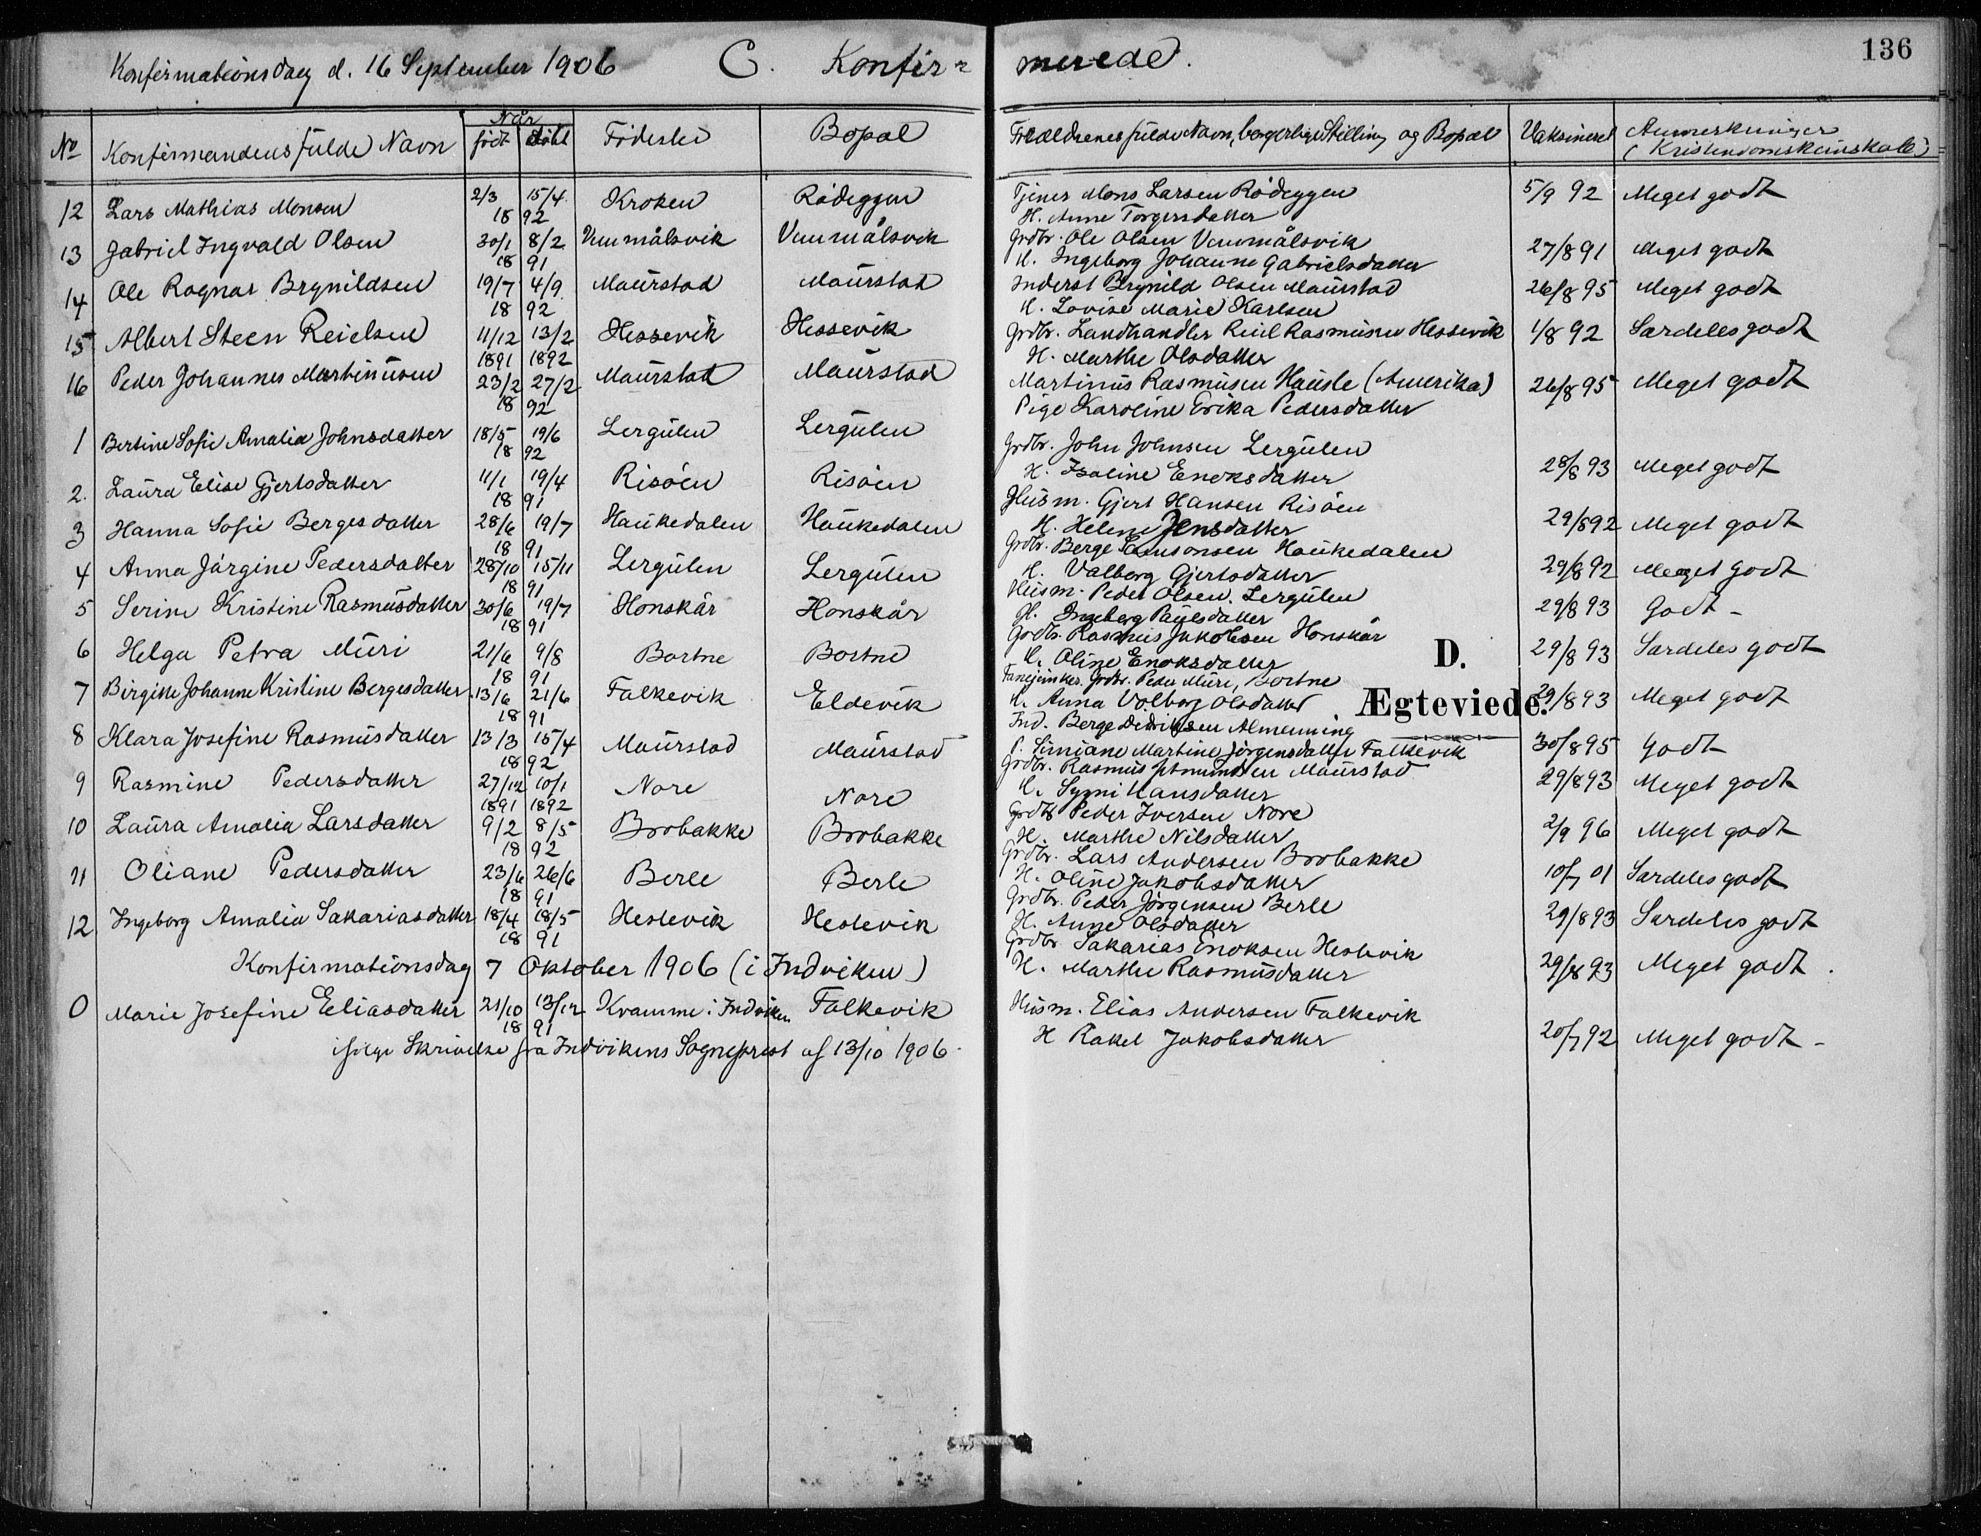 Konfirmationsdag d. 16 September 1906 C. Konfir- merede. 136
No Konfirmandens fulde Navn Når født døbt Fødested Bopæl Forældrenes fulde Navn, borgerlige Stilling og Bopæl Vaksineret Anmerkninger (Kristendomskunskab)
12 Lars Mathias Monsen 2/3 15/4 1892 Kroken Rødeggen Tjener Mons Larsen Rødeggen 5/9 92 Meget godt
H. Anne Torgersdatter
13 Gabriel Ingvald Olsen 30/1 8/2 1891 Vemmålsvik Vemmålsvik Grdbr. Ole Olsen Vemmålsvik 27/8 91 Meget godt
H. Ingeborg Johanne Gabrielsdatter
14 Ole Ragnar Brynildsen 19/7 4/9 1892 Maurstad Maurstad Inderst Brynild Olsen Maurstad 26/8 95 Meget godt
H. Lovise Marie Karlsen
15 Albert Steen Reielsen 11/12 1891 13/2 1892 Hessevik Hessevik Grdbr. Landhandler Reiel Rasmussen Hessevik 1/8 92 Særdeles godt
H. Marthe Olsdatter
16 Peder Johannes Martinusen 23/2 27/2 1892 Maurstad Maurstad Martinus Rasmusen Hausle (Amerika) 26/8 95 Meget godt
Pige Karoline Erika Pedersdatter
1 Bertine Sofie Amalia Johnsdatter 18/5 19/6 1892 Lergulen Lergulen Grdbr. John Johnsen Lergulen 28/8 93 Meget godt
H. Isaline Enoksdatter
2. Laura Elise Gjertsdatter 11/1 19/4 1891 Risøen Risøen Husm. Gjert Hansen Risøen 29/8 92 Meget godt
H. Helene Jensdatter
3 Hanna Sofie Bergesdatter 28/6 19/7 1891 Haukedalen Haukedalen Grdbr. Berge Samsonsen Haukedalen 29/8 92 Meget godt
H. Valborg Gjertsdatter
4 Anna Jørgine Pedersdatter 28/10 15/11 1891 Lergulen Lergulen Husm. Peder Olsen Lergulen 29/8 93 Godt -
H. Ingeborg Paulsdatter
5 Serine Kristine Rasmusdatter 30/6 19/7 1891 Honskår Honskår Grdbr. Rasmus Jakobsen Honskår 29/8 93 Særdeles godt
H. Oline Enoksdatter
D.
6 Helga Petra Muri 21/6 9/8 1891 Bortne Bortne Fanejunker. Grdbr. Peder Muri, Bortne 29/8 93 Meget godt
H. Anna Valborg Olsdatter
Ægteviede.
7 Birgitte Johanne Kristine Bergesdatter 13/6 21/6 1891 Falkevik Eldevik Ind. Berge Dedriksen Almenning 30/8 95 Godt
Simiane Martine Jørgensdatter Falkevik
8 Klara Josefine Rasmusdatter 13/3 15/4 1892 Maurstad Maurstad Grdbr. Rasmus Amundsen Maurstad 29/8 93 Meget godt
H. Synni Hansdatter
9 Rasmine Pedersdatter 27/12 1891 10/1 1892 Nore Nore Grdbr Peder Iversen Nore 2/9 96 Meget godt
H. Marthe Nilsdatter
10 Laura Amalia Larsdatter 9/2 8/5 1892 Brobakke Brobakke Grdbr. Lars Andersen Brobakke 10/7 01 Særdeles godt
H. Oline Jakobsdatter
11 Oliane Pedersdatter 23/6 26/6 1891 Berle Berle Grdbr. Peder Jørgensen Berle 29/8 93 Særdeles godt
H. Anne Olsdatter
12 Ingeborg Amalia Sakariasdatter 18/4 18/5 1891 Hestevik Hestevik Grdbr Sakarias Enoksen Hestevik 29/8 93 Meget godt.
H. Marthe Rasmusdatter
Konfirmationsdag 7 Oktober 1906 (i Indviken)
0 Marie Josefine Eeliasdatter 21/10 13/12 1891 Kvamme i Indviken Falkevik Husm. Elias Andersen Falkevik 20/7 92 Meget godt -
H Rakel Jakobsdatter
ifølge Skrivelse fra Indvikens Sogneprest af 13/10 1906.